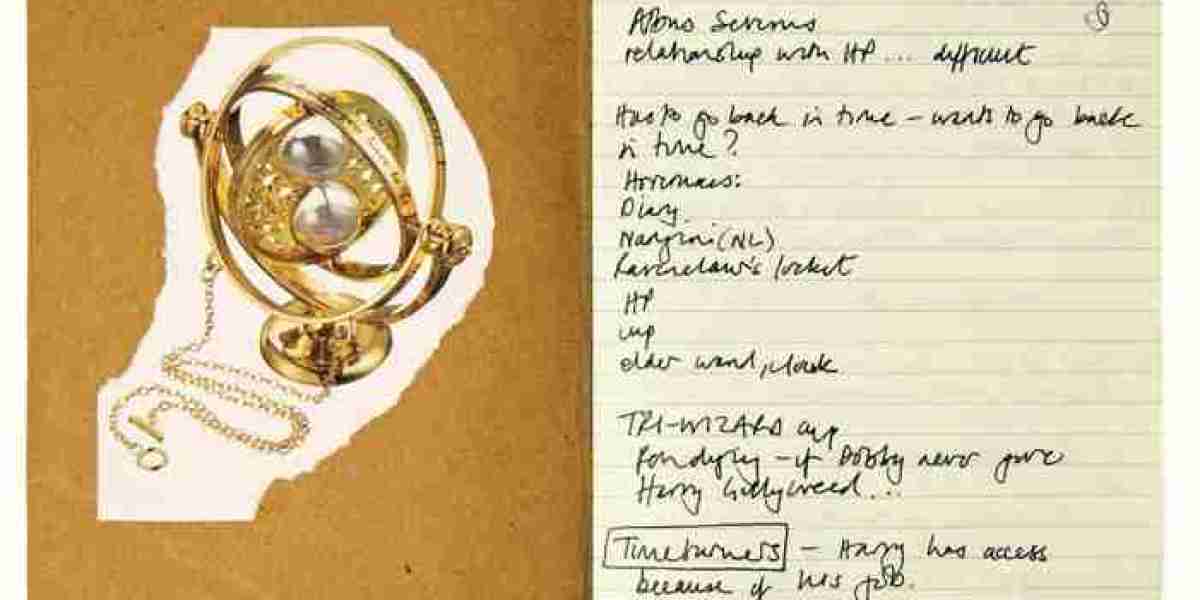 Albus Severus
relationship with HP ... difficult
Has to go back in time – wants to go back
in time?
Horcruxes:
Diary
Nagini (NL)
Ravenclaw's locket
HP
cup
elder wand, cloak
TRI-WIZARD cup
– if Dobby never gave
Harry Gillyweed...
Timeturners – Harry has access
because of his job.